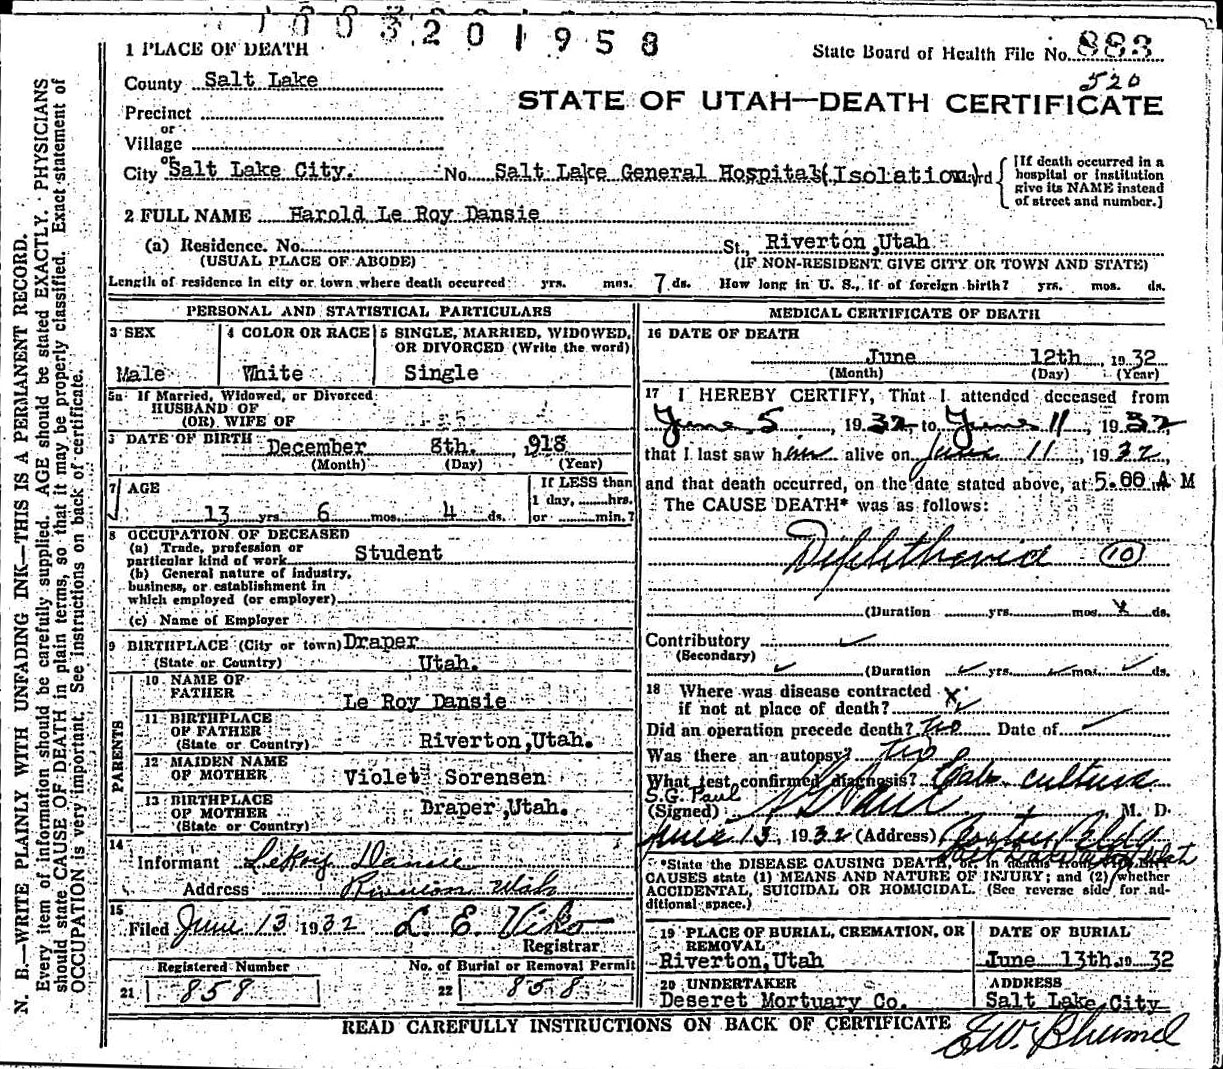 1003201958
1 PLACE OF DEATH
State Board of Health File No. 883
County Salt Lake
520
STATE OF UTAH—DEATH CERTIFICATE
Precinct
or
Village
or
City Salt Lake City. No. Salt Lake General Hospital (Isolation) Ward
[If death occurred in a hospital or institution give its NAME instead of street and number.]
2 FULL NAME Harold Le Roy Dansie
(a) Residence. No. St., Riverton, Utah
(USUAL PLACE OF ABODE) (IF NON-RESIDENT GIVE CITY OR TOWN AND STATE)
Length of residence in city or town where death occurred yrs. mos. 7 ds. How long in U. S., if of foreign birth? yrs. mos. ds.
PERSONAL AND STATISTICAL PARTICULARS
3 SEX
Male
4 COLOR OR RACE
White
5 SINGLE, MARRIED, WIDOWED,
OR DIVORCED (Write the word)
Single
5a If Married, Widowed, or Divorced
HUSBAND OF
(OR) WIFE OF
DATE OF BIRTH December 8th. , 918
(Month) (Day) (Year)
7 AGE
13 yrs. 6 mos. 4 ds.
If LESS than
1 day, hrs.
or min.?
8 OCCUPATION OF DECEASED
(a) Trade, profession or
particular kind of work Student
(b) General nature of industry,
business, or establishment in
which employed (or employer)
(c) Name of Employer
9 BIRTHPLACE (City or town) Draper
(State or Country) Utah.
PARENTS
10 NAME OF
FATHER
Le Roy Dansie
11 BIRTHPLACE
OF FATHER
(State or Country) Riverton, Utah.
12 MAIDEN NAME
OF MOTHER Violet Sorensen
13 BIRTHPLACE
OF MOTHER Draper, Utah.
(State or Country)
14
Informant LeRoy Dansie
Address Riverton Utah
15
Filed June 13 1932 L. E. Viko
Registrar
Registered Number
21 858
No. of Burial or Removal Permit
22 858
MEDICAL CERTIFICATE OF DEATH
16 DATE OF DEATH
June 12th , 1932
(Month) (Day) (Year)
17 I HEREBY CERTIFY, That I attended deceased from
June 5, 1932, to June 11, 1932,
that I last saw him alive on June 11, 1932,
and that death occurred, on the date stated above, at 5.00 A M
The CAUSE DEATH* was as follows:
Diphtheria (10)
(Duration yrs. mos. ds.
Contributory
(Secondary)
(Duration yrs. mos. ds.
18 Where was disease contracted
if not at place of death?
Did an operation precede death? no Date of
Was there an autopsy? no
What test confirmed diagnosis? Lab. culture
S.G. Paul
(Signed) M. D.
June 13, 1932 (Address)
*State the DISEASE CAUSING DEATH,
CAUSES state (1) MEANS AND NATURE OF INJURY; and (2) whether
ACCIDENTAL, SUICIDAL OR HOMICIDAL. (See reverse side for ad-
ditional space.)
19 PLACE OF BURIAL, CREMATION, OR
REMOVAL
Riverton, Utah
DATE OF BURIAL
June 13th. 19 32
20 UNDERTAKER
Deseret Mortuary Co.
ADDRESS
Salt Lake City
READ CAREFULLY INSTRUCTIONS ON BACK OF CERTIFICATE
N. B.—WRITE PLAINLY WITH UNFADING INK—THIS IS A PERMANENT RECORD.
Every item of information should be carefully supplied. AGE should be stated EXACTLY. PHYSICIANS
should state CAUSE OF DEATH in plain terms, so that it may be properly classified. Exact statement of
OCCUPATION is very important. See instructions on back of certificate.